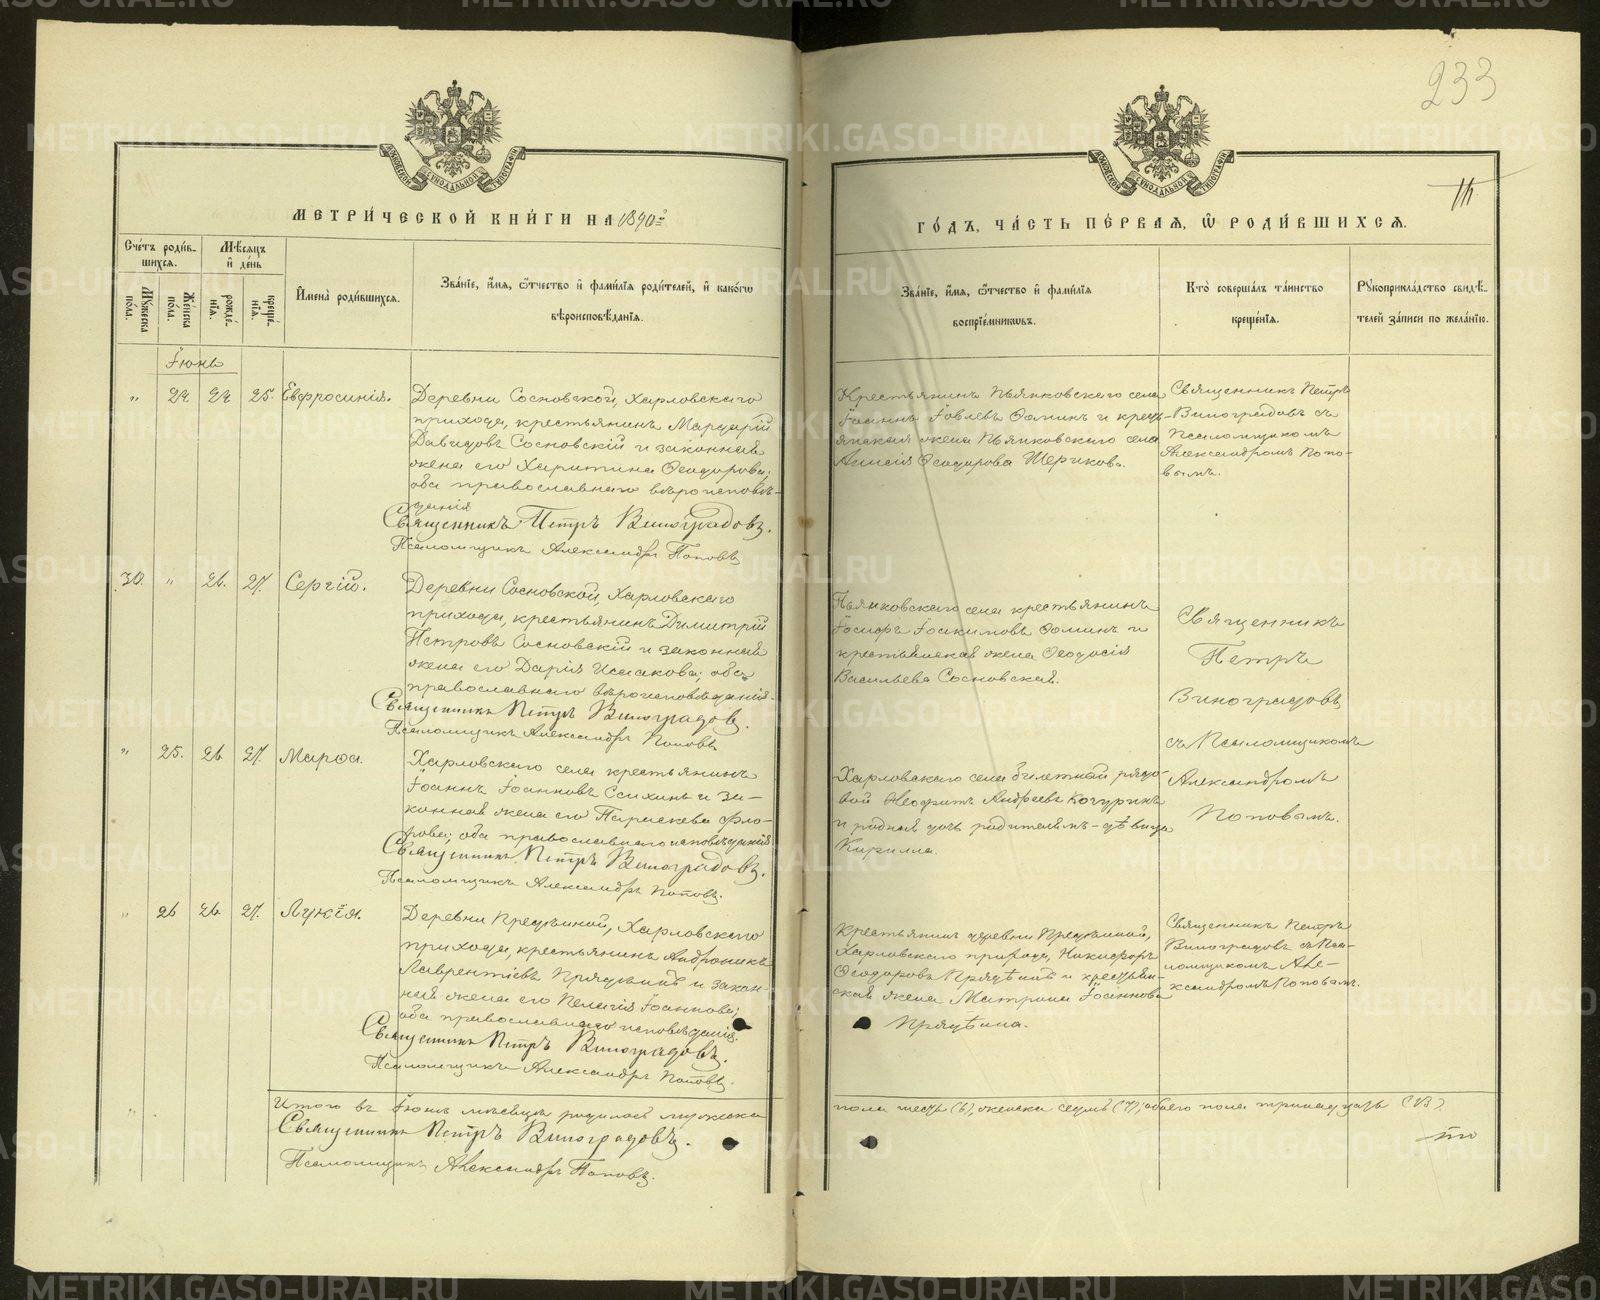 233
МЕТРИ́ЧЕСКОЙ КНИ́ГИ НА 1890 г.
ГО́ДЪ, ЧА́СТЬ ПЕ́РВАЯ, Ѡ РОДИ́ВШИХСЯ.
Сче́тъ роди́вшихся.
Мужеска по́ла.
Же́нска по́ла.
Мѣсяцъ и де́нь
рожде́нія.
креще́нія.
И҆мена̀ роди́вшихся.
Зва́нїе, и҆́мя, ѻ҆́тчество и҆ фами́лїя роди́телей, и҆ како́гѡ
вѣроисповѣ́данїя.
Зва́нїе, и҆́мя, ѻ҆́тчество и҆ фами́лїя
воспрїе́мникѡвъ.
Кто̀ соверша́лъ та́инство
креще́нїя.
Рꙋкоприкла́дство свидѣ́-
телей за́писи по жела́нїю.
Іюнь
" 24 24 25. Евфросинія.
Деревни Сосновской, Харловскаго
прихода, крестьянинъ Мардарій
Давидовъ Сосновскій и законная
жена его Харитина Ѳеодорова;
оба православнаго вѣроисповѣ-
данія
Священникъ Петръ Виноградовъ.
Псаломщикъ Александръ Поповъ
Крестьянинъ Пьянковскаго села
Іоаннъ Іовлевъ Ѳоминъ и кресть-
янская жена Пьянковскаго села
Анисія Ѳеодорова
Священникъ Петръ
Виноградовъ съ
Псаломщикомъ
Александромъ Попо-
вымъ.
30. " 26. 27. Сергій.
Деревни Сосновской, Харловскаго
прихода, крестьянинъ Димитрій
Петровъ Сосновскій и законная
жена его Дарія Исаакова; оба
православнаго вѣроисповѣданія.
Священникъ Петръ Виноградовъ.
Псаломщикъ Александръ Поповъ
Пьянковскаго села крестьянинъ
Іосифъ Іоакимовъ Ѳоминъ и
крестьянская жена Ѳеодосія
Васильева Сосновская.
Священникъ
Петръ
Виноградовъ
съ Псаломщикомъ
Александромъ
Поповымъ.
" 25. 26. 27. Марѳа.
Харловскаго села крестьянинъ
Іоаннъ Іоанновъ и за-
конная жена его Параскева Фло-
рова; оба православнаго исповѣданія.
Священникъ Петръ Виноградовъ.
Псаломщикъ Александръ Поповъ.
Харловскаго села билетный рядо-
вой Неофитъ Андреевъ Кочуринъ
и родная дочь родителямъ - дѣвица
Кирилла.
" 26 26. 27. Лукія.
Деревни Прядѣиной, Харловскаго
прихода, крестьянинъ Андроникъ
Лаврентіевъ Прядѣинъ и закон-
ная жена его Пелагія Іоаннова;
оба православнаго исповѣданія.
Священникъ Петръ Виноградовъ.
Псаломщикъ Александръ Поповъ.
Крестьянинъ деревни Прядѣиной,
Харловскаго прихода, Никифоръ
Ѳеодоровъ Прядѣинъ и крестьян-
ская жена Матрона Іоаннова
Прядѣина.
Священникъ Петръ
Виноградовъ съ Пса-
ломщикомъ Але-
ксандромъ Поповымъ.
Итого въ Іюнѣ мѣсяцѣ родилось мужеска
пола шесть (6), женска семь (7); обоего пола тринадцать (13).
Священникъ Петръ Виноградовъ.
Псаломщикъ Александръ Поповъ.